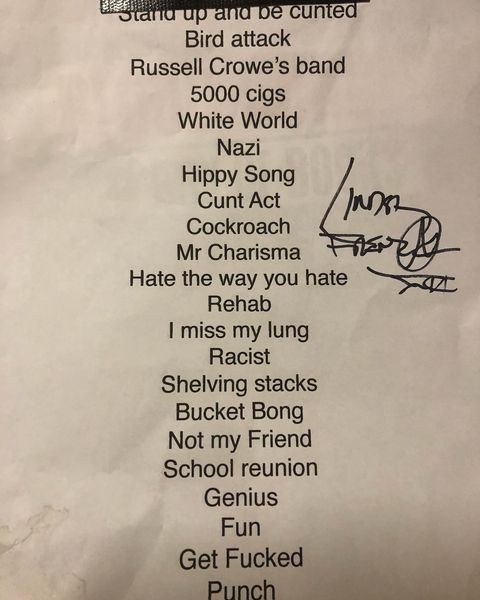 Stand up and be cunted
Bird attack
Russell Crowe's band
5000 cigs
White World
Nazi
Hippy Song
Cunt Act
Cockroach
Mr Charisma
Hate the way you hate
Rehab
I miss my lung
Racist
Shelving stacks
Bucket Bong
Not my Friend
School reunion
Genius
Fun
Get Fucked
Punch